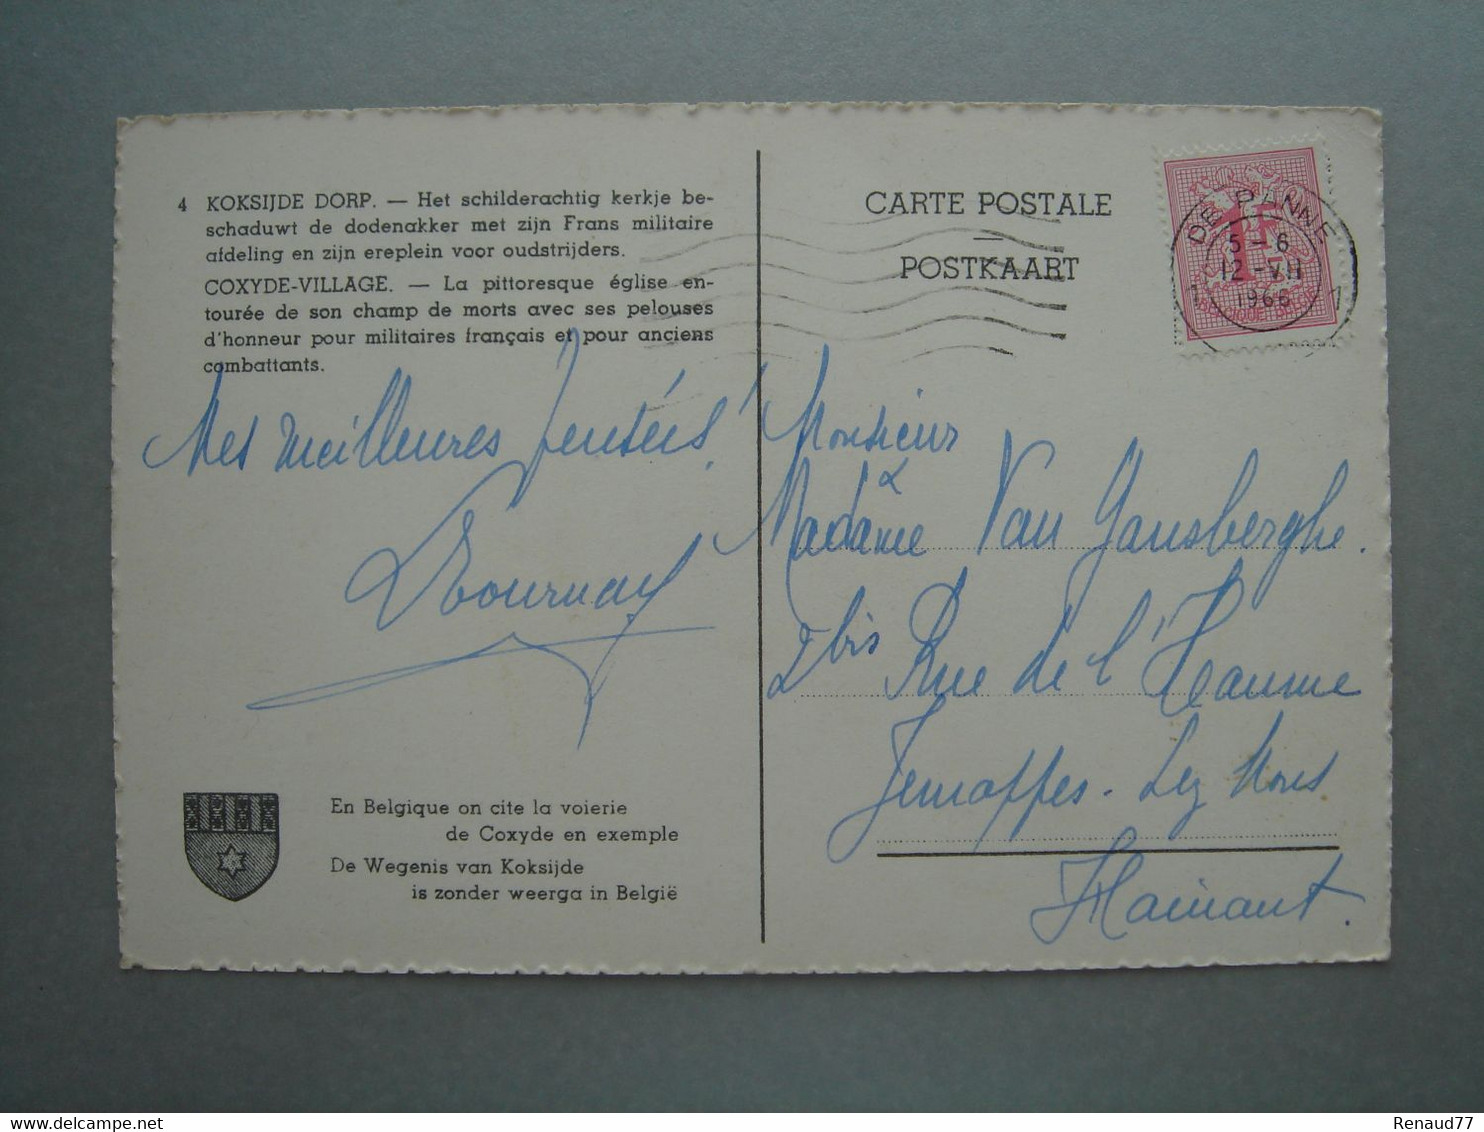 4 KOKSIJDE DORP. — Het schilderachtig kerkje be-
schaduwt de dodenakker met zijn Frans militaire
afdeling en zijn ereplein voor oudstrijders.
COXYDE-VILLAGE. — La pittoresque église en-
tourée de son champ de morts avec ses pelouses
d'honneur pour militaires français et pour anciens
combattants.
Mes meilleures pensées!
Tournay
En Belgique on cite la voierie
de Coxyde en exemple
De Wegenis van Koksijde
is zonder weerga in België
CARTE POSTALE
—
POSTKAART
DE PANNE
5-6
12-VII
1966
1 1
Monsieur
&
Madame Van Gansberghe.
2 bis Rue de l'Heaume
Jemappes. Lez Mons
Hainaut.
Renaud77